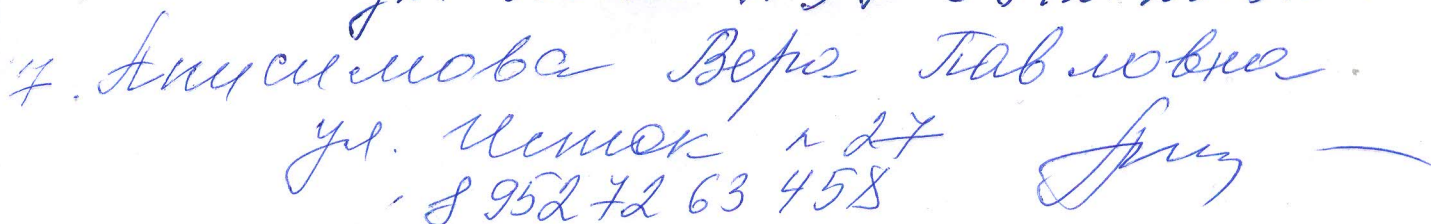 7. Анисимова Вера Павловна.
ул. Исток д 27
8 952 72 63 458